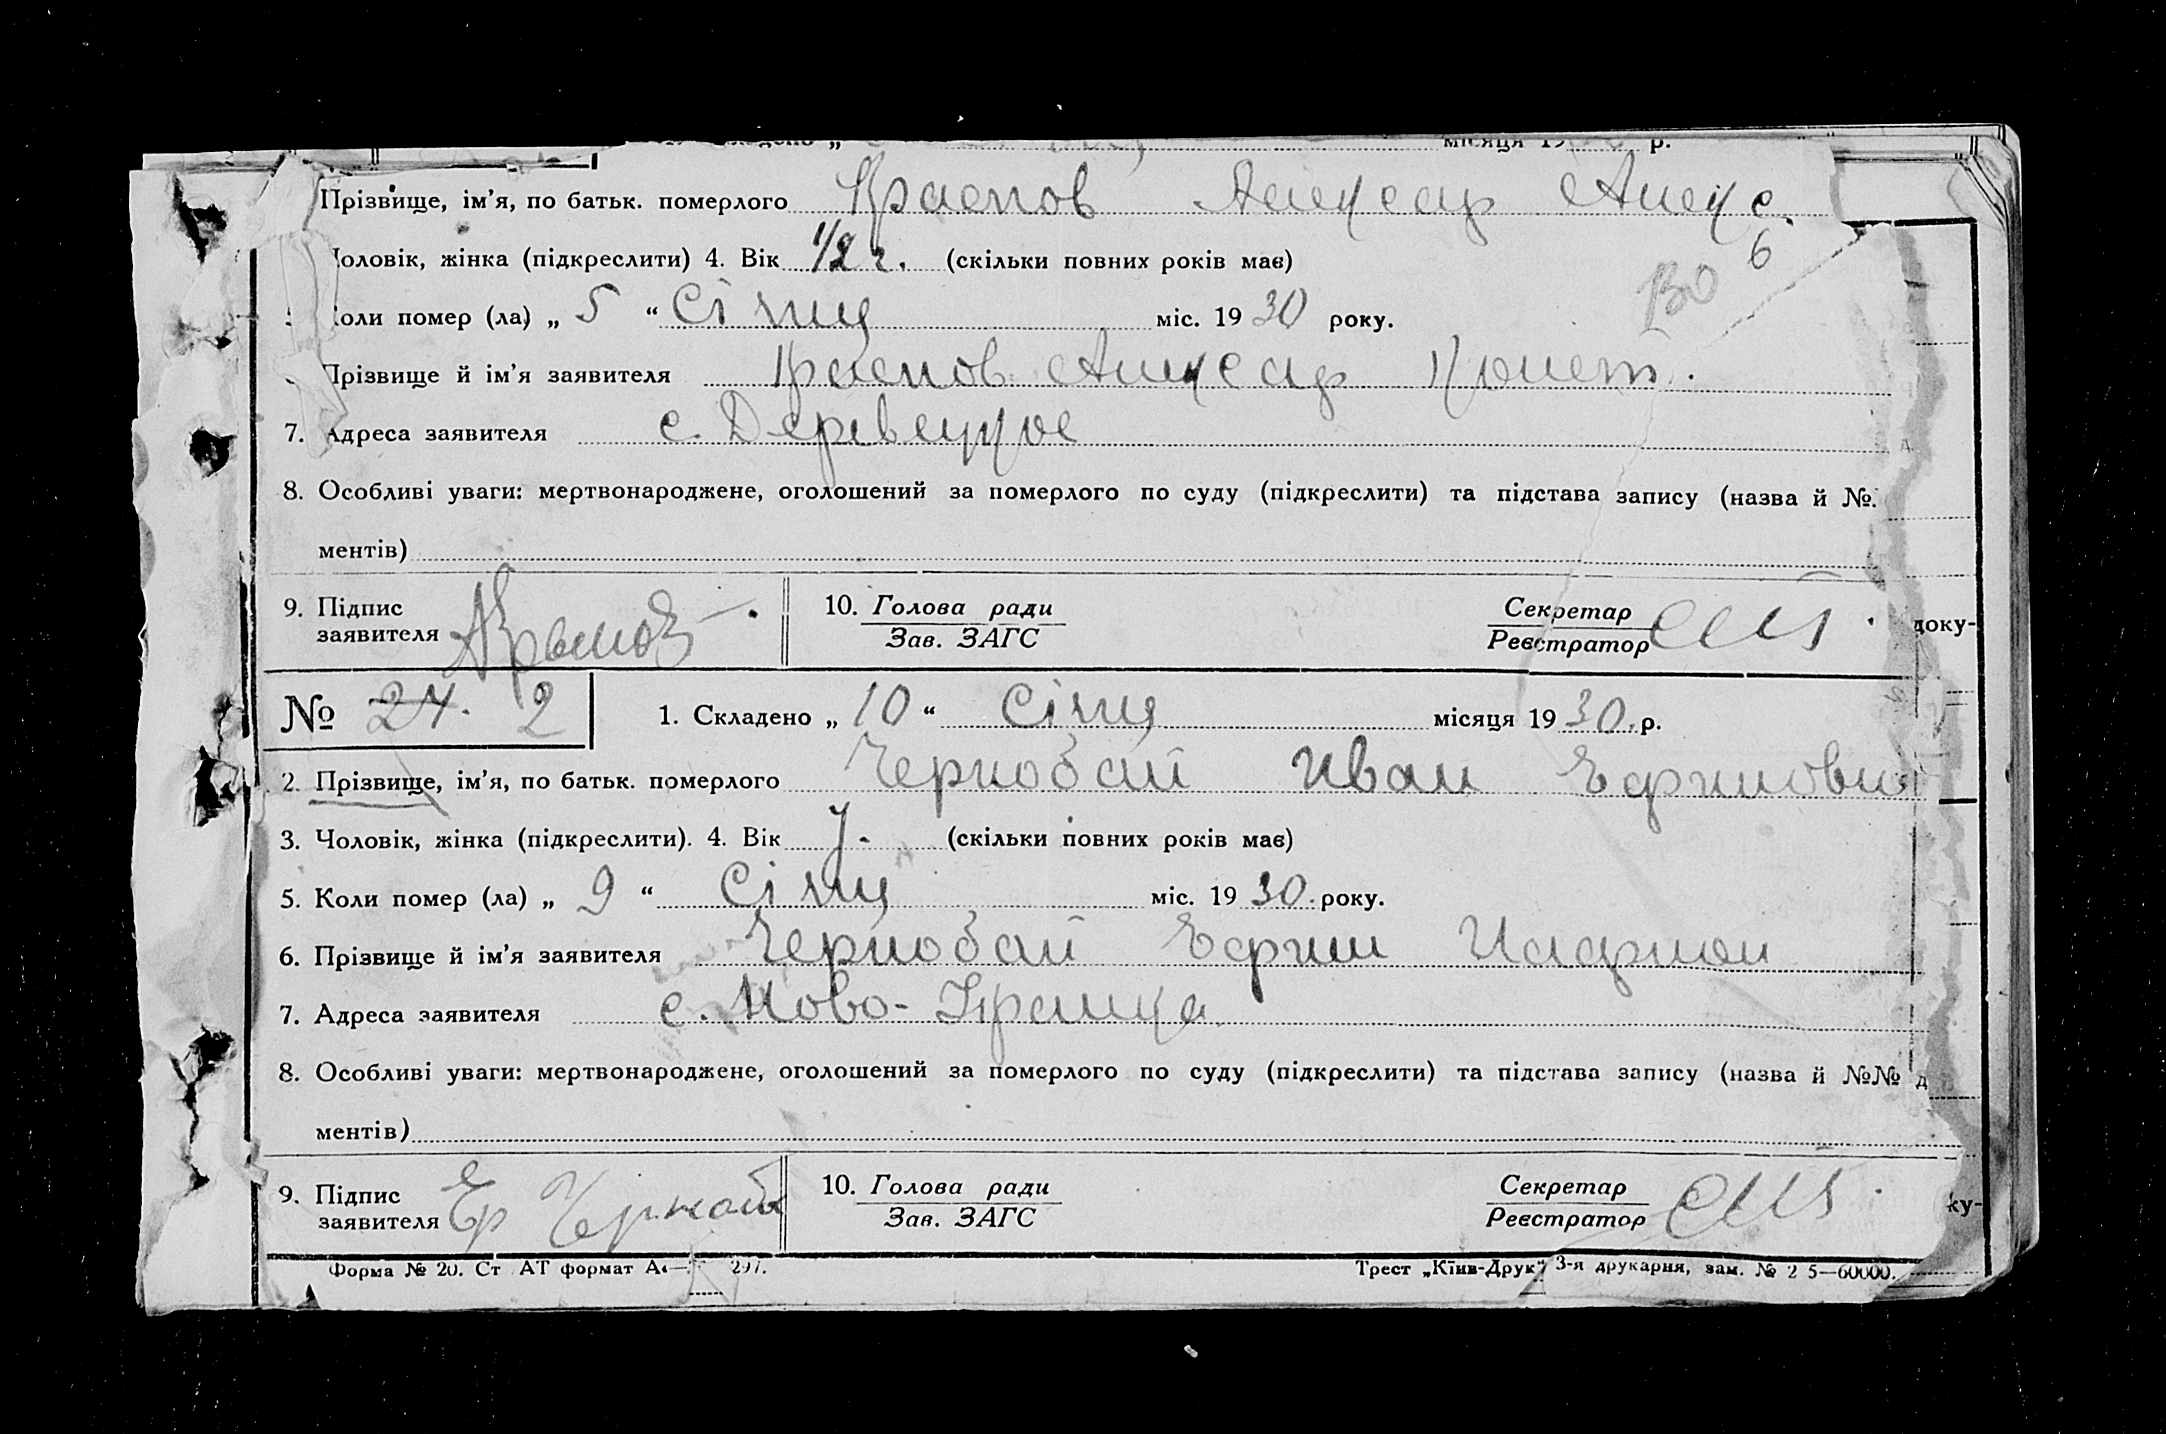 місяця 19 р.
Прізвище, ім'я, по батьк. померлого Краснов Алексар Алекс.
Чоловік, жінка (підкреслити) 4. Вік 1/2 г. (скільки повних років має) 6
Коли помер (ла) „ 5 “ Січня міс. 1930 року.
Прізвище й ім'я заявителя Краснов Алексар
7. Адреса заявителя с.
8. Особливі уваги: мертвонароджене, оголошений за померлого по суду (підкреслити) та підстава запису (назва й №.
ментів)
9. Підпис заявителя 10. Голова ради Зав. ЗАГС Секретар Реєстратор
доку-
№ 24. 2 1. Складено „ 10 “ Січня місяця 1930. р.
2. Прізвище, ім'я, по батьк. померлого Чернобай Иван Ефимович
3. Чоловік, жінка (підкреслити). 4. Вік 7. (скільки повних років має)
5. Коли помер (ла) „ 9 “ Січня міс. 1930. року.
6. Прізвище й ім'я заявителя Чернобай Ефим Иларион
7. Адреса заявителя с. Ново-
8. Особливі уваги: мертвонароджене, оголошений за померлого по суду (підкреслити) та підстава запису (назва й №№ д
ментів)
9. Підпис заявителя Еф Чернобай 10. Голова ради Зав. ЗАГС Секретар Реєстратор
ку-
Форма № 20. Ст АТ формат А4— 297. Трест „Київ-Друк“ 3-я друкарня, зам. № 2 5—60000.